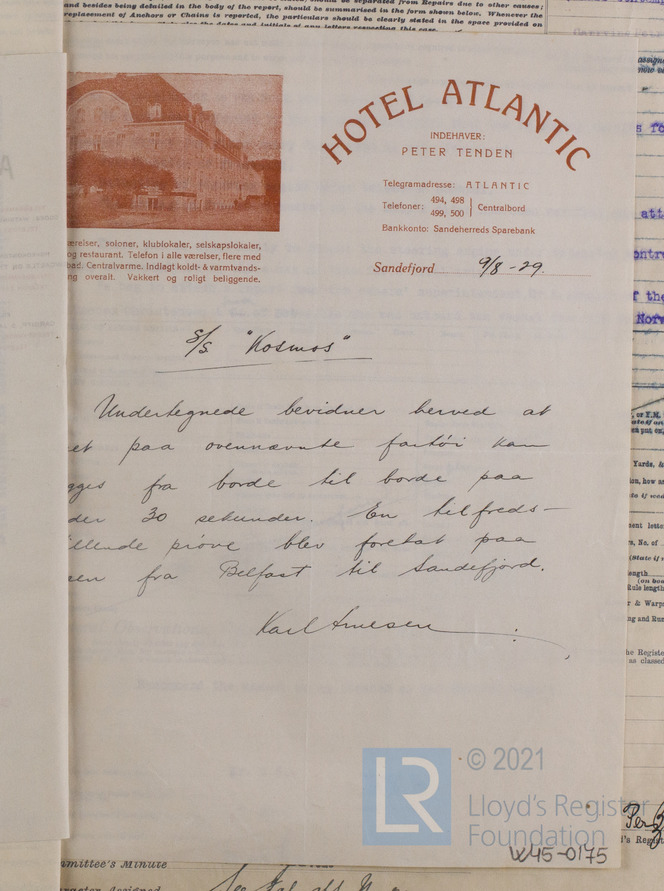 and besides being detailed in the body of the report, should be summarised in the form shown below. Whenever the
replacement of Anchors or Chains is reported, the particulars should be clearly stated in the space provided on
HOTEL ATLANTIC
INDEHAVER:
PETER TENDEN
Telegramadresse: ATLANTIC
Telefoner: 494, 498
499, 500 Centralbord
Bankkonto: Sandeherreds Sparebank
ærelser, soloner, klublokaler, selskapslokaler,
og restaurant. Telefon i alle værelser, flere med
bad. Centralvarme. Indlagt koldt- & varmtvands-
ng overalt. Vakkert og roligt beliggende.
Sandefjord 9/8 - 29.
S/S. "Kosmos"
Undertegnede bevidner herved at
et paa ovennævnte fartöi kan
gges fra borde til borde paa
der 30 sekunder. En tilfreds-
illende pröve blev foretat paa
en fra Belfast til Sandefjord.
Karl Arnesen
© 2021
LR
Lloyd's Register
Foundation
W45-0175
mmittee's Minute
s fo
att
ontr
f the
Norw
Yards, &
Rule length
r & Warp
ng and Run
he Registe
as classed
's Regist